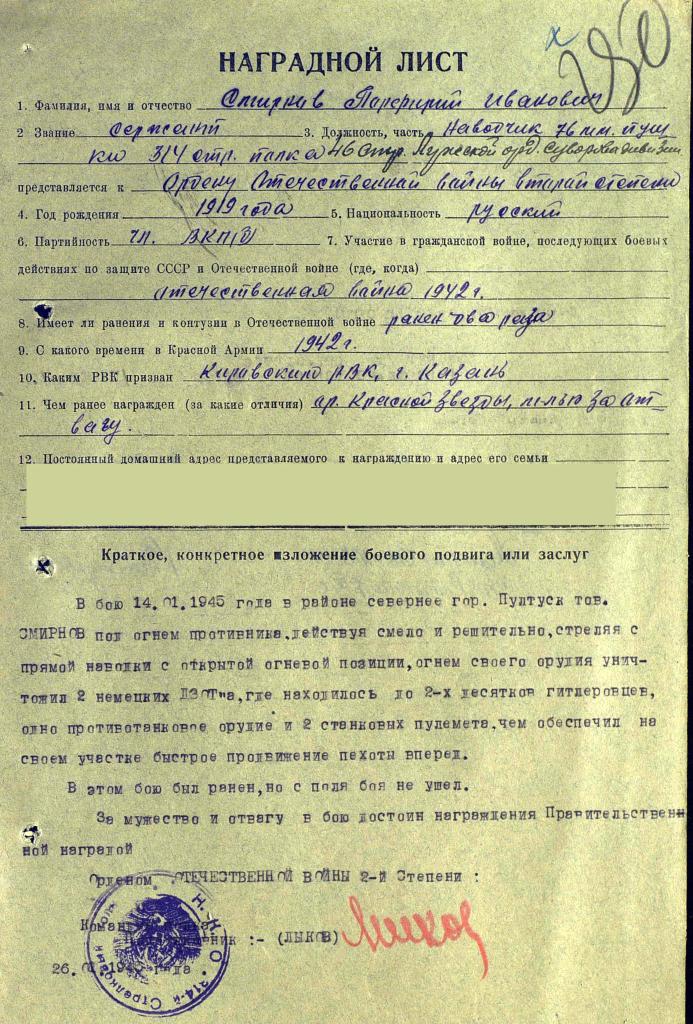 х
НАГРАДНОЙ ЛИСТ
1. Фамилия, имя и отчество Смирнов Порфирий Иванович
2 Звание сержант 3. Должность, часть Наводчик 76 мм. пуш-
ки 314 стр. полка 46 стр. Лужской орд. Суворова дивизии
представляется к Ордену Отечественной войны второй степени
4. Год рождения 1919 года 5. Национальность русский
6. Партийность чл. ВКП(б) 7. Участие в гражданской войне, последующих боевых
действиях по защите СССР и Отечественной войне (где, когда)
отечественная война 1942 г.
8. Имеет ли ранения и контузии в Отечественной войне ранен два раза
9. С какого времени в Красной Армии 1942 г.
10. Каким РВК призван Кировским РВК, г. Казань
11. Чем ранее награжден (за какие отличия) ор. Красной Звезды, медалью За от-
вагу.
12. Постоянный домашний адрес представляемого к награждению и адрес его семьи
Краткое, конкретное изложение боевого подвига или заслуг
В бою 14.01.1945 года в районе севернее гор. Пултуск тов.
СМИРНОВ под огнем противника,действуя смело и решительно,стреляя с
прямой наводки с открытой огневой позиции,огнем своего орудия унич-
тожил 2 немецких ДЗОТ'а,где находилось до 2-х десятков гитлеровцев,
одно противотанковое орудие и 2 станковых пулемета,чем обеспечил на
своем участке быстрое продвижение пехоты вперед.
В этом бою был ранен,но с поля боя не ушел.
За мужество и отвагу в бою достоин награждения Правительствен-
ной наградой
Орденом ОТЕЧЕСТВЕННОЙ ВОЙНЫ 2-й Степени :
:- (ЛЫКОВ) Лыков
26.01.1945 года
Н.К.О. 314-й Стрелковый